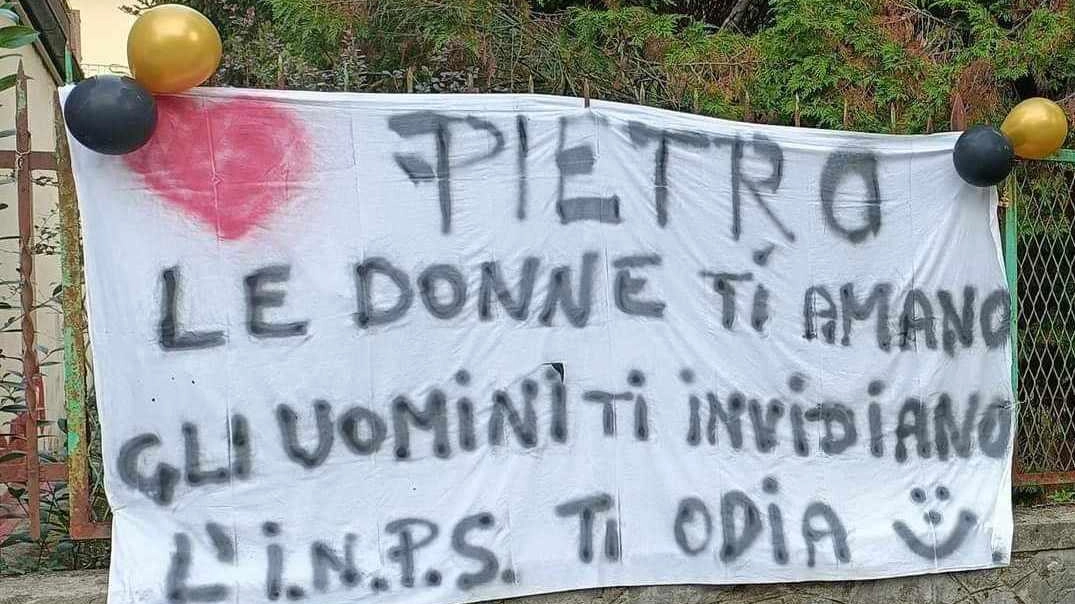 PIETRO
LE DONNE Ti AMANO
GLi UOMiNi Ti iNViDiANO
L'i.N.P.S. Ti ODiA